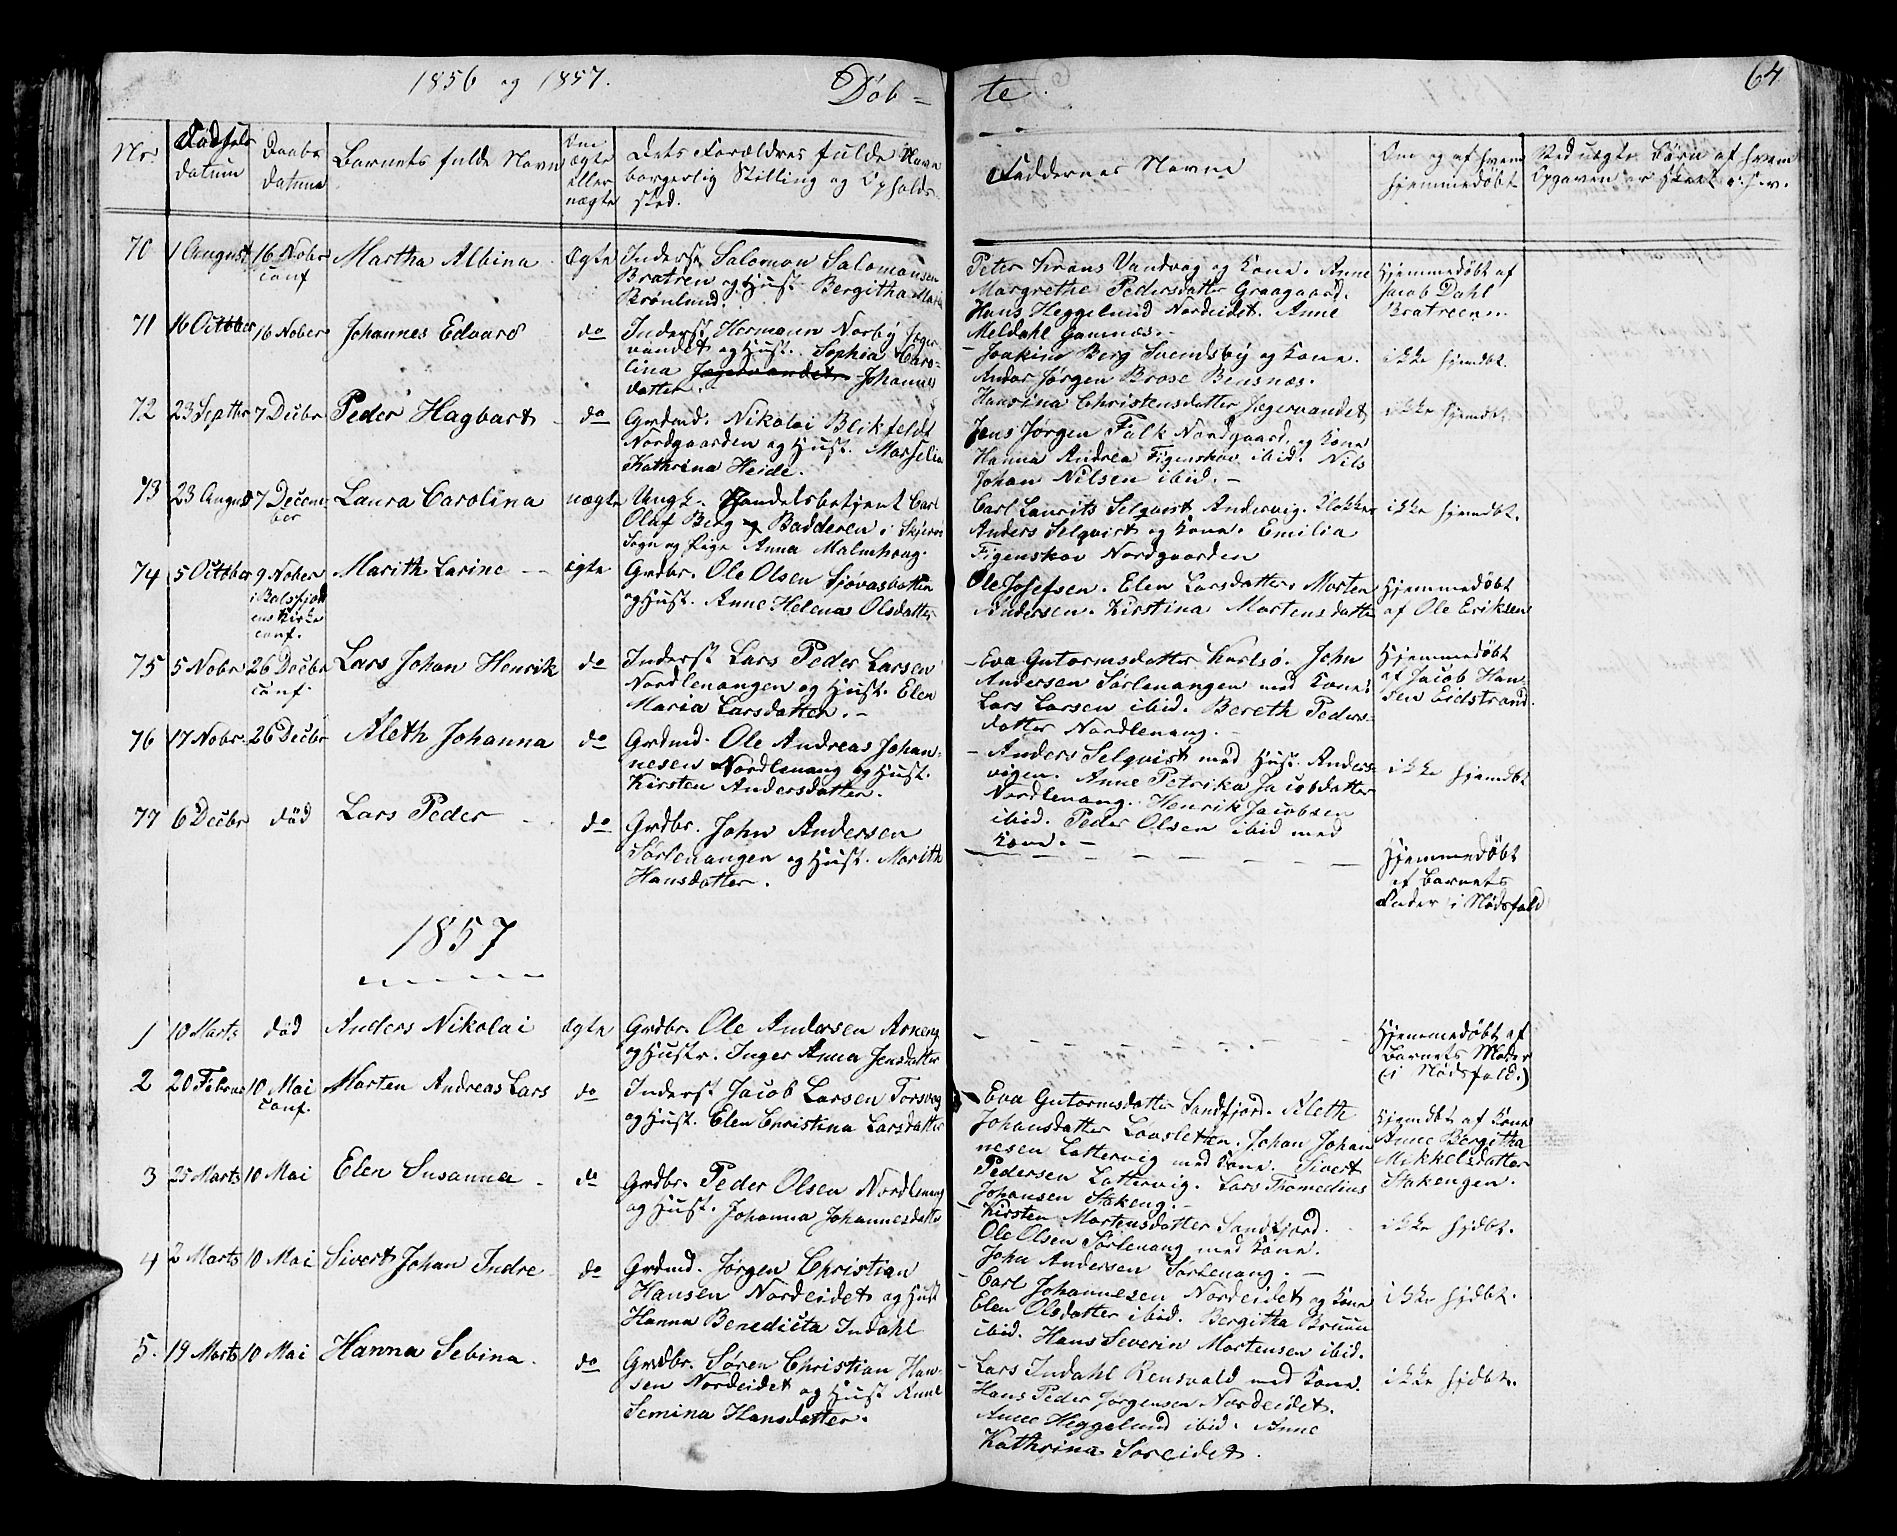 1856 og 1857. Døb= te. 64.
No Fødsels datum Daabs datum Barnets fulde Navn Om ægte eller uægte Dets Forældres fulde Navn borgerlig Stilling og Opholds sted. Faddernes Navne Om og af hvem hjemmedøbt Ved uægte Børn af hvem Opgaven er skeet o.s.v.
70 1 August 16 Nobr conf Martha Albina Ægte Inderst Salomon Salomonsen
Bratren og Hust. Bergitha Maria
Brønlund.
Peter Krans Vandvog og Kone. Anne
Margrethe Pedersdatter Graagaard.
Hans Heggelund Nordeidet. Anne
Meldahl Gamnæs.-
Hjemmedøbt af
Jacob Dahl
Bratreen.
71 16 October 16 Nober Johannes Edvard do Inderst Hermann Norby Jæger
vandet og Hust. Sophia Caro-
lina Jægervandet Johannes
datter.
- Joakim Berg Svendsby og Kone.
Andor Jørgen Brose Bensnæs.
Hansina Christensdatter Jægervandet
ikke hjemdbt.
72 23 Septbr 7 Decbr Peder Hagbart do Grdmd. Nikolai Blikfeldt
Nordgaarden og Hust. Marselia
Kathrina Heide.
Jens Jørgen Falk Nordgaard og Kone
Hanna Andrea Figenskov ibid. Nils
Johan Nilsen ibid.-
ikke hjemdbt.
73 23 August 7 Decem-
ber Laura Carolina uægte Ungk. Handelsbetjent Carl
Oluf Berg Badderen i Skjervø
Sogn og Pige Anna Malmhoug.
Carl Laurits Selqvist Andervig. Klokker
Anders Selqvist og Kone. Emilia
Figenskov Nordgaarden
ikke hjemdbt.
74 5 October 9 Nober
i Balsfjord
ens Kirke
conf. Marith Larine ægte Grdbr. Ole Olsen Sjøvasbotten
og Hust. Anne Helena Olsdatter
Ole Josefsen. Elen Larsdatter. Morten
Andersen. Kirstina Mortensdatter
Hjemmedøbt
af Ole Eriksen
75 5 Nobr 26 Decbr
conf. Lars Johan Henrik do Inderst Lars Peder Larsen
Nordlenangen og Hust. Elen
Maria Larsdatter.-
- Eva Gutormsdatter Karlsø. John
Andersen Sørlenangen med Kone.
Lars Larsen ibid. Bereth Peders-
datter Nordlenang.-
Hjemmedøbt
af Jacob Han-
sen Eidstrand.
76 17 Nobr. 26 Decbr Aleth Johanna do Grdmd. Ole Andreas Johan-
nesen Nordlenang og Hust.
Kirsten Andersdatter.
- Anders Selqvist med Hust. Anders-
vigen. Anne Petrika Jacobsdatter
Nordlenang. Henrik Jacobsen
ibid. Peder Olsen ibid med
Kone.-
ikke hjemdbt
77 6 Decbr død Lars Peder do Grdbr. John Andersen
Sørlenangen og Hust. Marith
Hansdatter.
Hjemmedøbt
af Barnets
Fader i Nødsfald
1857
1 10 Marts død Anders Nikolai Ægte Grdbr. Ole Andersen Arneng
og Hustr. Inger Anna Jensdatter
Hjemmedøbt af
Barnets Moder
(i Nødsfald.)
2 20 Februar 10 Mai
conf. Morten Andreas Lars do Inderst Jacob Larsen Torsvog
og Hust. Elen Christina Larsdatter
- Eva Gutormsdatter Sandfjord. Aleth
Johansdatter Løvsletten. Johan Johan
nesen Lattervig med Kone. Sivert
Pedersen Lattervig. Lars Thomedius
Johansen Stakeng.-
Hjemdbt af Kone
Anne Bergitha
Mikkelsdatter
Stakengen.
3 25 Marts 10 Mai Elen Susanna do Grdbr. Peder Olsen Nordlenang
og Hust. Johanna Johannesdatter
- Kirsten Mortensdatter Sandfjord.
Ole Olsen Sørlenang med Kone.
John Andersen Sørlenang.-
ikke hjdbt.
4 2 Marts 10 Mai Sivert Johan Indre do Grdmd. Jørgen Christian
Hansen Nordeidet og Hust
Hanna Benedicta Indahl
- Carl Johannesen Nordeidet og Kone
Elen Olsdatter ibid. Bergitha Bruun
ibid. Hans Severin Mortensen ibid.
ikke hjdbt.
5. 19 Marts 10 Mai Hanna Sebina. do Grdbr. Søren Christian Han-
sen Nordeidet og Hust Anne
Semina Hansdatter.
- Lars Indahl Rensvald med Kone.
Hans Peder Jørgensen Nordeidet.
Anne Heggelund ibid. Anne
Kathrina Sareidet.
ikke hjdbt.